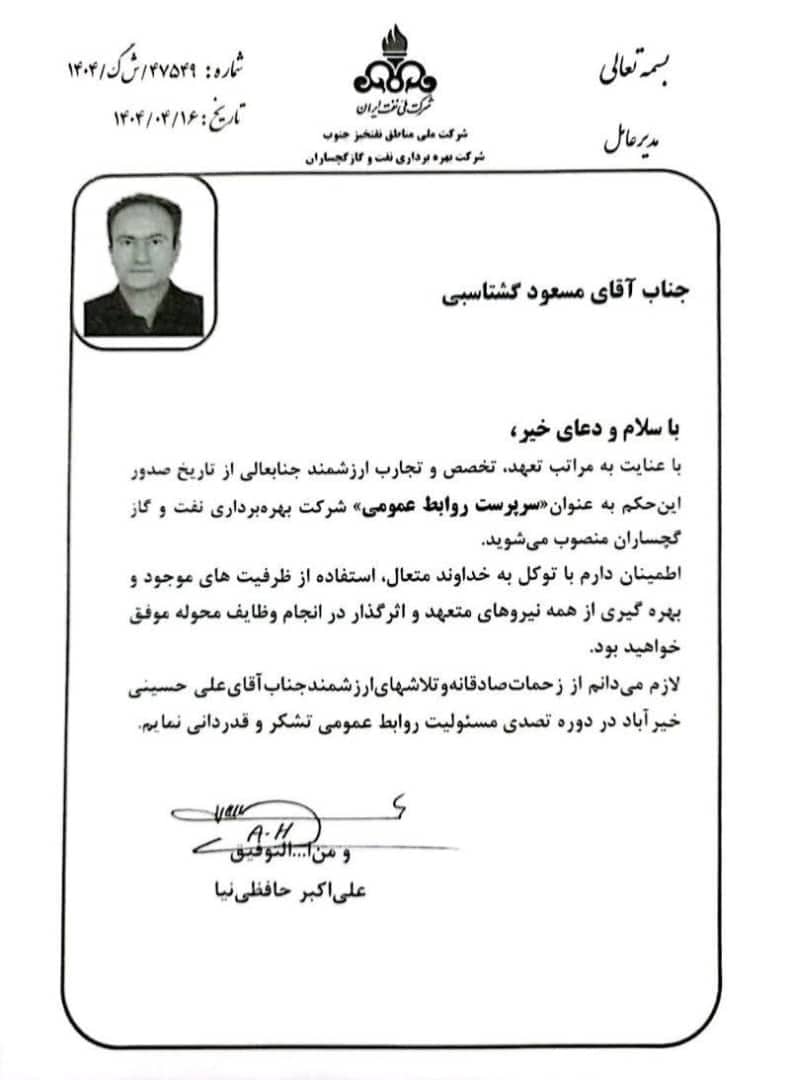 بسمه تعالی
مدیرعامل
شرکت ملی نفت ایران
شرکت ملی مناطق نفتخیز جنوب
شرکت بهره برداری نفت و گاز گچساران
شماره: ۴۷۵۴۹/ش گ/۱۴۰۴
تاریخ: ۱۴۰۴/۰۴/۱۶
جناب آقای مسعود گشتاسبی
با سلام و دعای خیر،
با عنایت به مراتب تعهد، تخصص و تجارب ارزشمند جنابعالی از تاریخ صدور
این‌حکم به عنوان«سرپرست روابط عمومی» شرکت بهره‌برداری نفت و گاز
گچساران منصوب می‌شوید.
اطمینان دارم با توکل به خداوند متعال، استفاده از ظرفیت های موجود و
بهره گیری از همه نیروهای متعهد و اثرگذار در انجام وظایف محوله موفق
خواهید بود.
لازم می‌دانم از زحمات‌صادقانه‌و‌تلاشهای‌ارزشمندجناب‌آقای‌علی حسینی
خیرآباد در دوره تصدی مسئولیت روابط عمومی تشکر و قدردانی نمایم.
A-H
و من‌ا...التوفیق
علی‌اکبر حافظی‌نیا